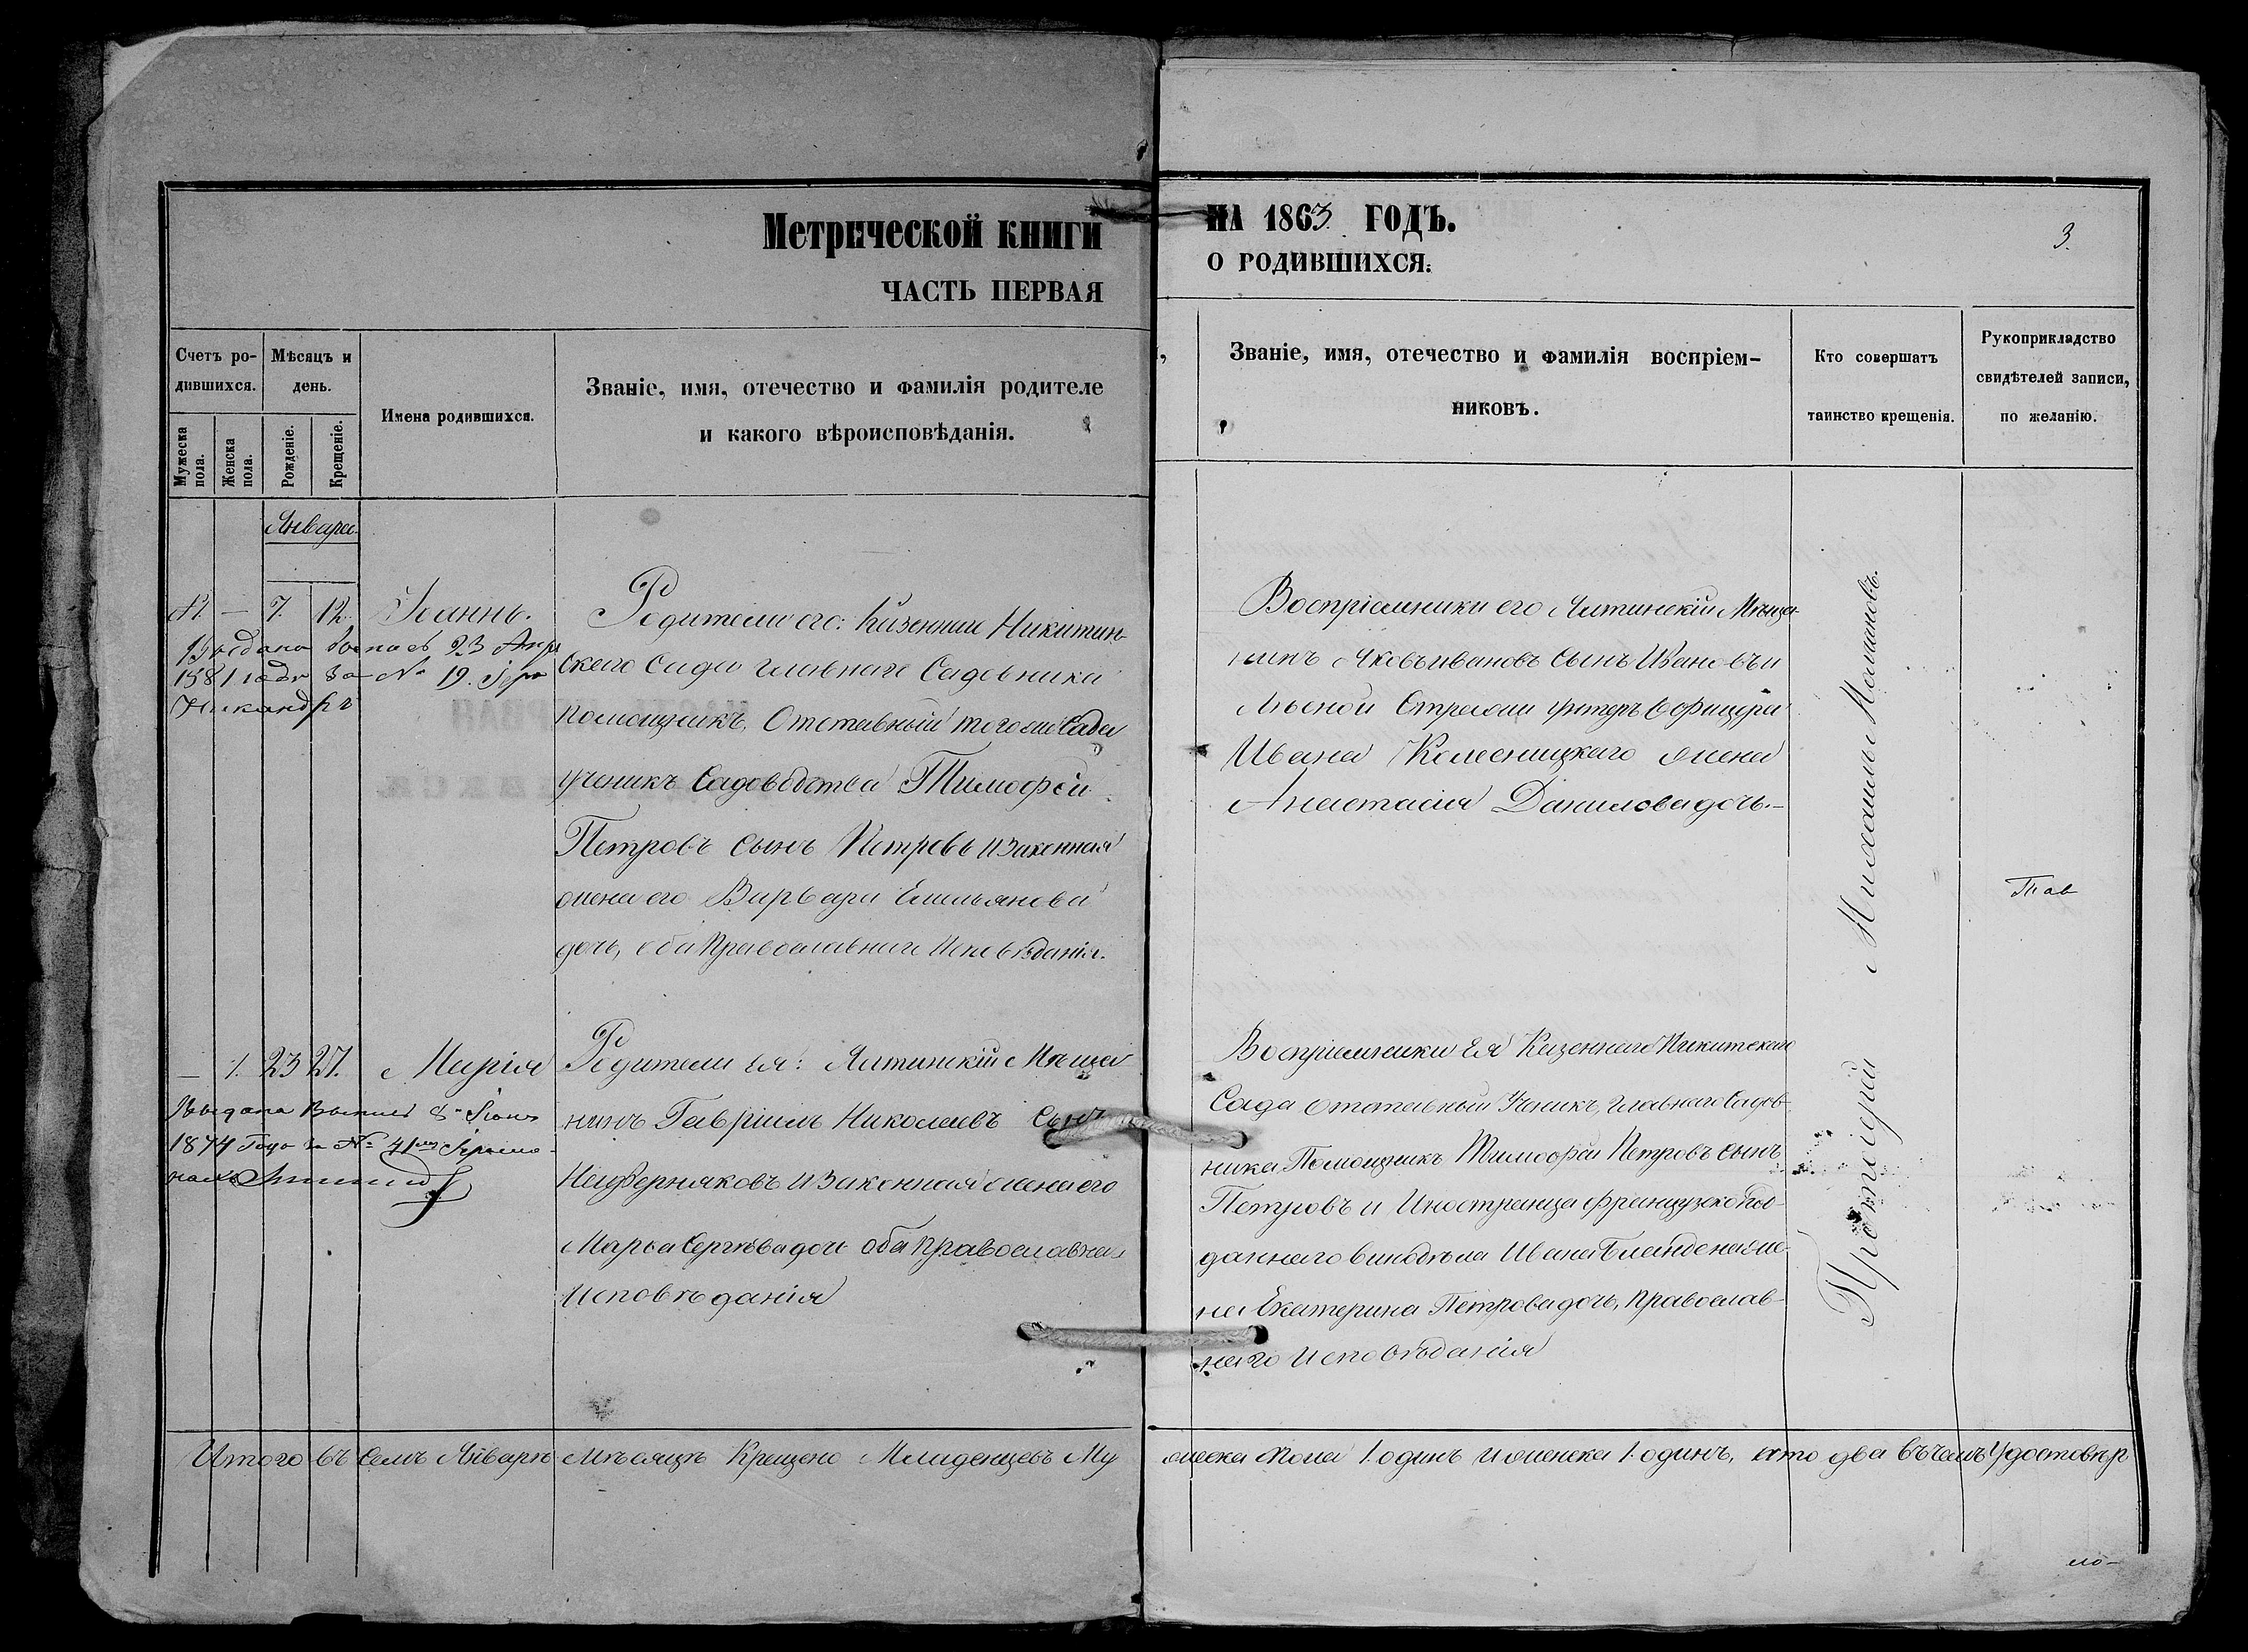 Метрической книги
ЧАСТЬ ПЕРВАЯ
НА 1863 ГОДЪ.
О РОДИВШИХСЯ:
3.
Счетъ ро-
дившихся.
Мѣсяцъ и
день.
Мужеска пола.
Женска пола.
Рожденіе.
Крещеніе.
Имена родившихся.
Званіе, имя, отечество и фамилія родителе
и какого вѣроисповѣданія.
Званіе, имя, отечество и фамилія воспріем-
никовъ.
Кто совершатъ
таинство крещенія.
Рукоприкладство
свидѣтелей записи,
по желанію.
Января
1. — 7. 12. Іоаннъ.
1881 года за № 19. Іеро
Никандръ
Родители его: Казеннаго Никитин-
скаго Сада главнаго Садовника
помощникъ, Отставный того же Сада
ученикъ Садоводства Тимофей
Петровъ сынъ Петровъ и законная
жена его Варвара Емельянова
дочь, оба православнаго Исповѣданія.
Воспріемники его Ялтинскій Мѣща-
нинъ Яковъ Ивановъ сынъ Ивановъ и
Унтеръ Офицера
Ивана Колесницкаго жена
Анастасія Данилова дочь.—
— 1. 23 27. Марія
Выдана Выпись 8 Іюня
1874 Года за № 41 Іеромо-
нахъ
Родители ея: Ялтинскій Мѣща
нинъ Гавріилъ Николаевъ Сынъ
и законная жена его
Марѳа Сергѣева дочь оба православнаго
Исповѣданія
Воспріемники ея Казеннаго Никитскаго
Сада отставный Ученикъ, главнаго Садов-
ника Помощникъ Тимофей Петровъ сынъ
Петровъ и Иностранца французско под-
даннаго винодѣла Ивана же-
на Екатерина Петрова дочь, православ-
наго Исповѣданія
Протоіерей
Итого въ семъ Январѣ Мѣсяцѣ Крещено Младенцевъ Му
жеска пола 1. одинъ и женска 1. одинъ, итого два въ чемъ Удостовѣр